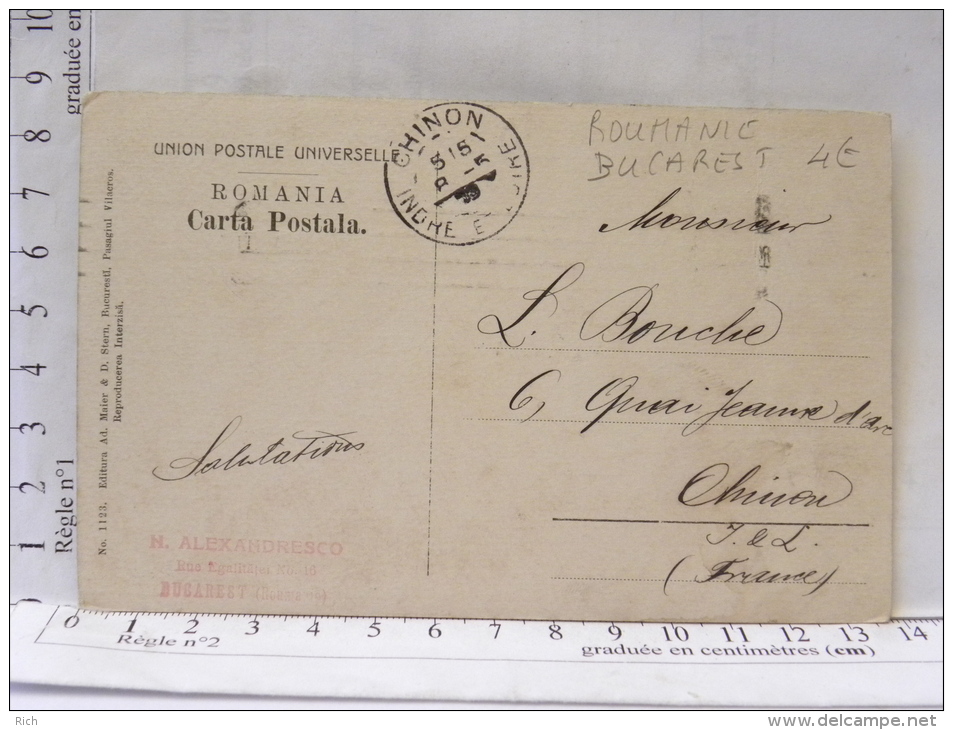 ROUMANIE
BUCAREST 4E
UNION POSTALE UNIVERSELLE
ROMANIA
Carta Postala.
CHINON
INDRE
Monsieur
L. Bouche
6, Quai Jeanne d'arc
Chinon
I. & L.
(France)
Salutations
N. ALEXANDRESCO
Rue
BUCAREST
No. 1123. Editura Ad. Maier & D. Stern, Bucuresti, Pasagiul Vilacros.
Reproducerea Interzisă.
Règle n°1
graduée en
10
9
8
7
6
5
4
3
2
1
0 1 2 3 4 5 6 7 8 9 10 11 12 13 14
Règle n°2
graduée en centimètres (cm)
Rich
www.delcampe.net